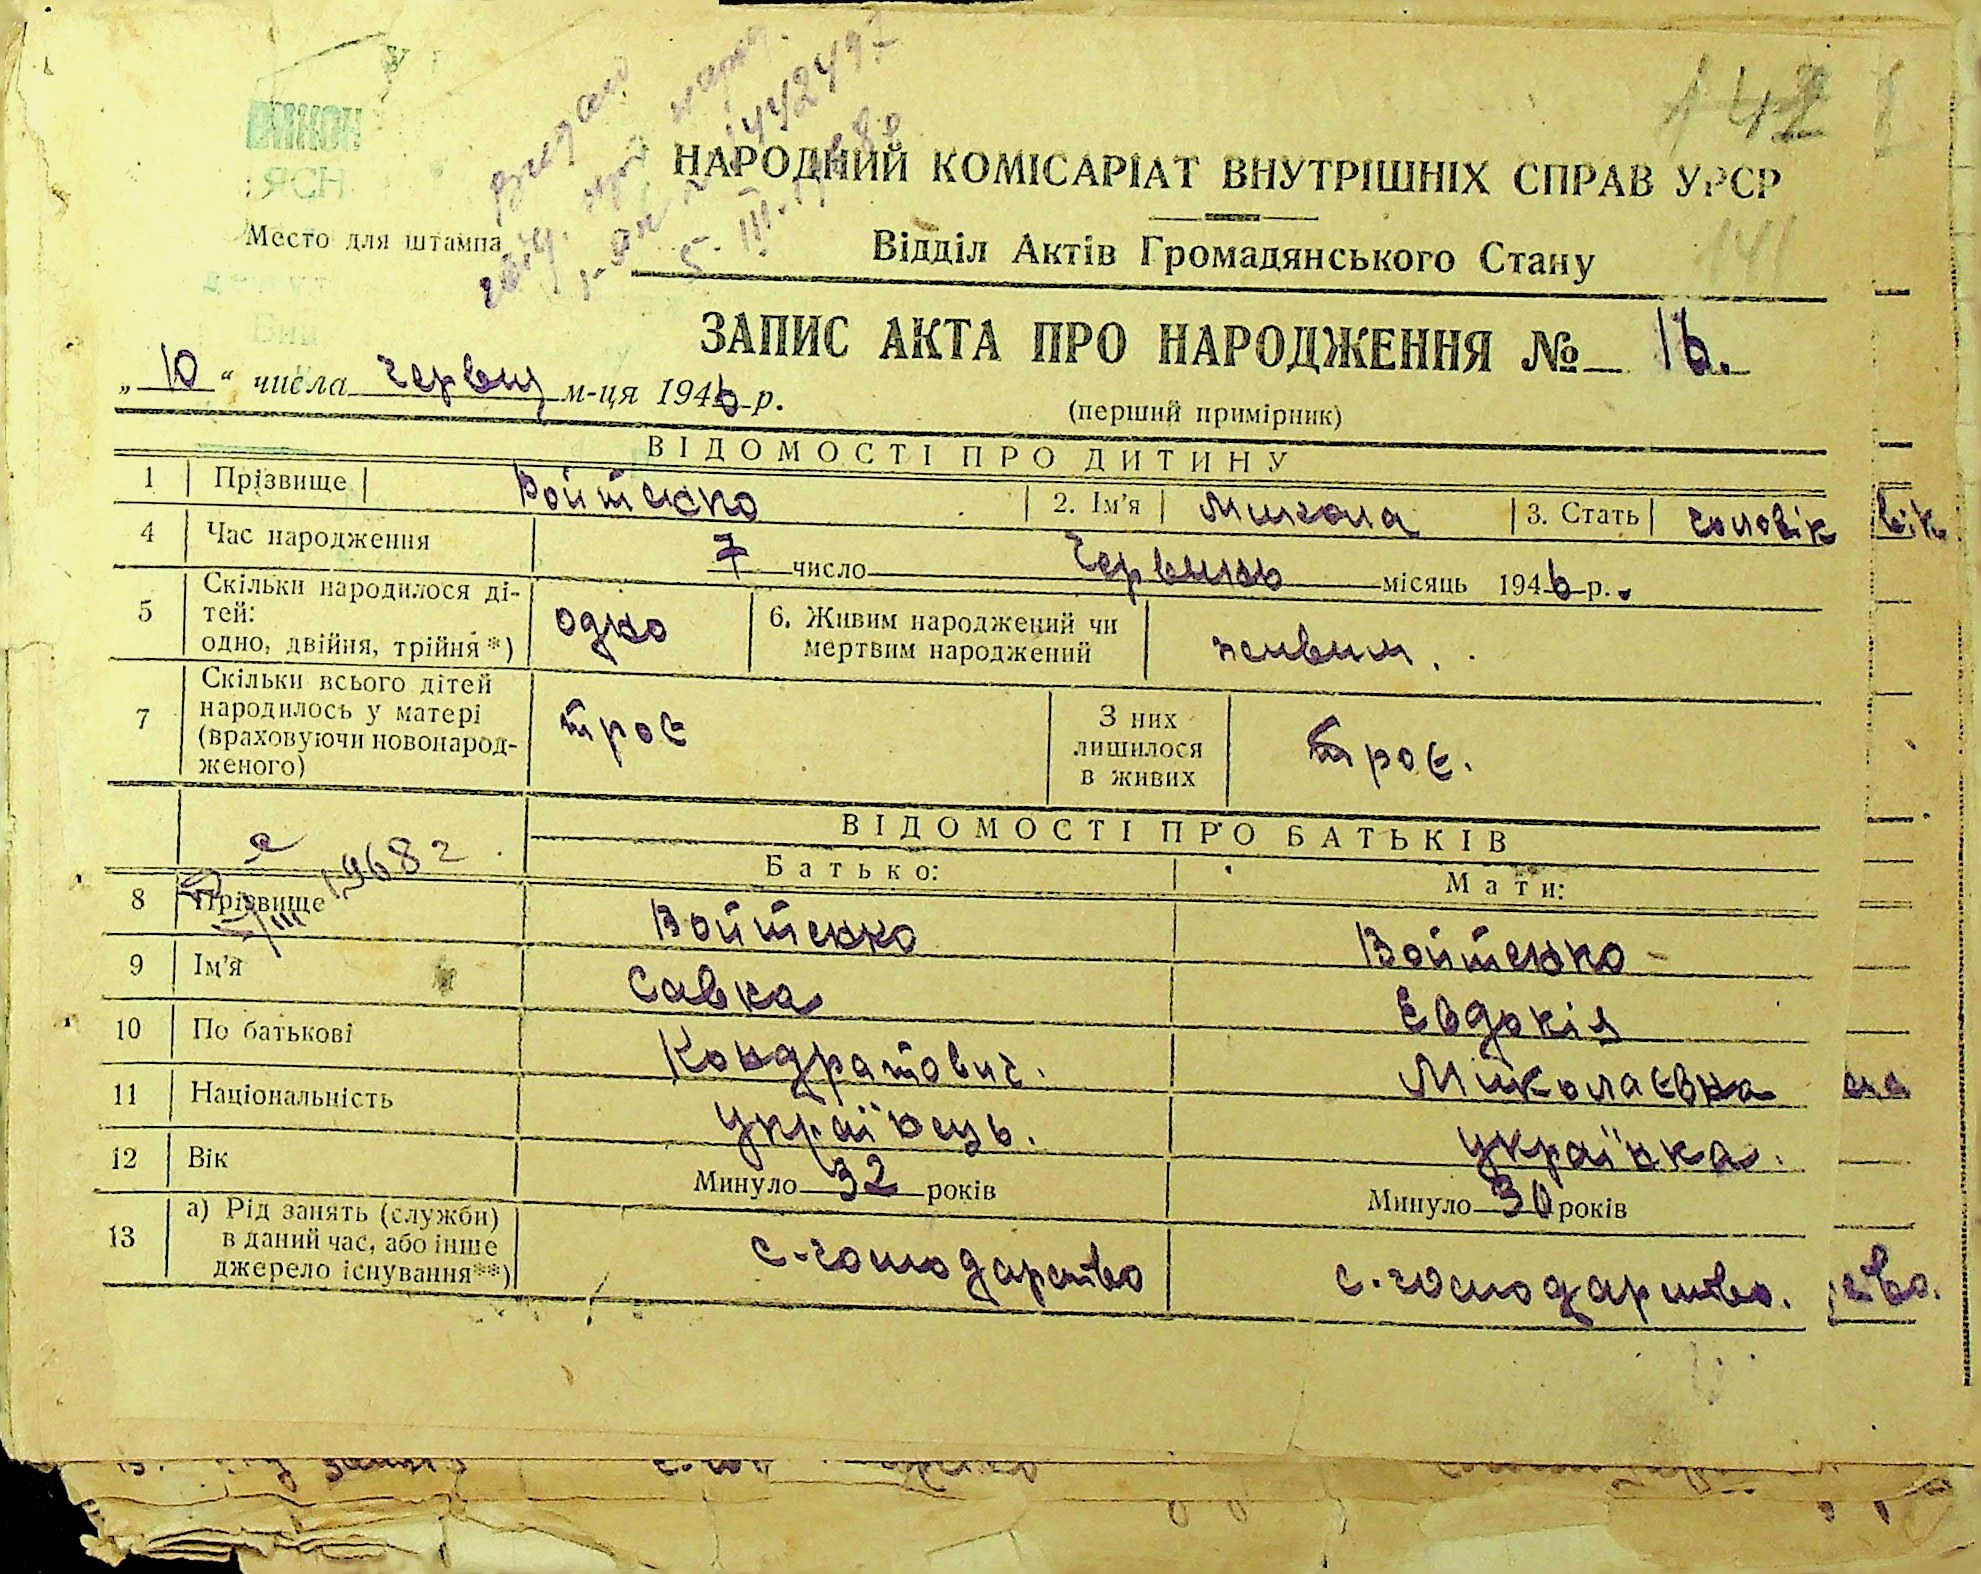 142
Видано
свід. про народ.
5. III. 1968 г
НАРОДНИЙ КОМІСАРІАТ ВНУТРІШНІХ СПРАВ УРСР
Место для штампа
Відділ Актів Громадянського Стану
141
ЗАПИС АКТА ПРО НАРОДЖЕННЯ № 16.
„ 10 “ числа червня м-ця 1946 р.
(перший примірник)
ВІДОМОСТІ ПРО ДИТИНУ
1 Прізвище Войтенко 2. Ім'я Микола 3. Стать чоловік
4 Час народження 7 число Червень місяць 1946 р.
5 Скільки народилося ді-
тей:
одно, двійня, трійня *) одно 6. Живим народжений чи
мертвим народжений живим.
7 Скільки всього дітей
народилось у матері
(враховуючи новонарод-
женого) троє З них
лишилося
в живих троє.
ВІДОМОСТІ ПРО БАТЬКІВ
Батько: Мати:
5/III 1968 г
8 Прізвище Войтенко Войтенко
9 Ім'я Савка Євдокія
10 По батькові Кондратович. Миколаєвна
11 Національність українець. українка.
12 Вік Минуло 32 років Минуло 30 років
13 а) Рід занять (служби)
в даний час, або інше
джерело існування**) с-господарство с.-господарство.